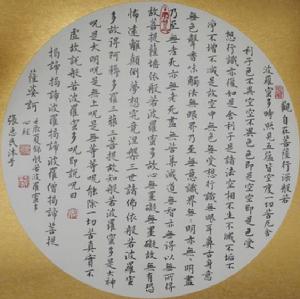 觀自在菩薩行深般若
波羅蜜多時照見五蘊皆空度一切苦厄舍
利子色不異空空不異色色即是空空即是色受
想行識亦復如是舍利子是諸法空相不生不滅不垢不
淨不增不減是故空中無色無受想行識無眼耳鼻舌身意
無色聲香味觸法無眼界乃至無意識界無無明亦無無明盡
乃至無老死亦無老死盡無苦集滅道無智亦無得以無所得
故菩提薩埵依般若波羅蜜多故心無罣礙無罣礙故無有恐
怖遠離顛倒夢想究竟涅槃三世諸佛依般若波羅蜜
多故得阿耨多羅三藐三菩提故知般若波羅蜜多是大神
咒是大明咒是無上咒是無等等咒能除一切苦真實不
虛故說般若波羅蜜多咒即說咒曰
揭諦揭諦波羅揭諦波羅僧揭諦菩提
薩婆訶
般若波羅蜜多
心經